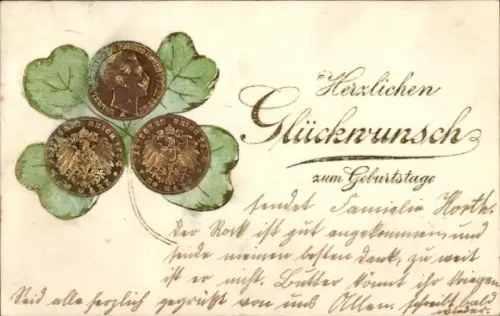 Herzlichen
Glückwunsch
zum Geburtstage
sendet Familie Horth.
Der Rock ist gut
angekommen, und
seide meinen besten Dank, zu weit
ist er nicht. Butter könnt ihr kriegen
Seid alle herzlich gegrüßt von uns Allen. schreibt bald
wieder.